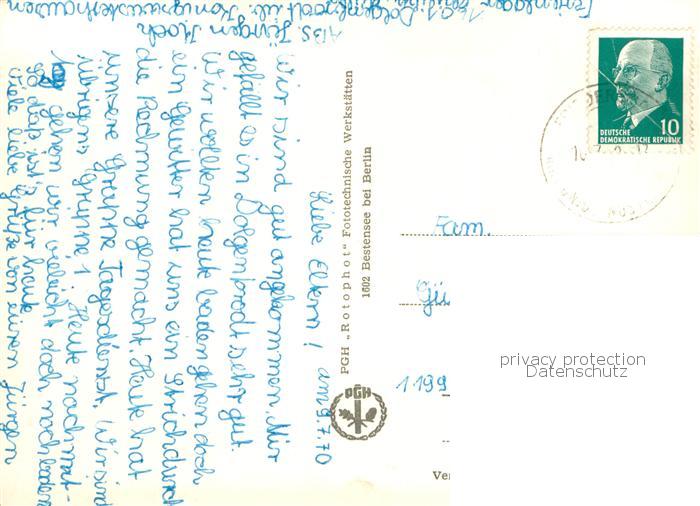 Abs. Jürgen Koch
1601 Dolgenbrodt üb. Königswusterhausen
Ferienlager
Liebe Eltern! am 9.7.70
Wir sind gut angekommen. Mir
gefällt es in Dolgenbrodt sehr gut.
Wir wollten heute baden gehen doch
ein Gewitter hat uns ein Strich durch
die Rechnung gemacht. Heute hat
unsere Gruppe Tagesdienst. Wir sind
übrigens Gruppe 1. Heute nachmit-
tag gehen wir vielleicht doch noch baden
so das ist's für heute
viele liebe Grüße von euren Jürgen
PGH „Rotophot" Fototechnische Werkstätten
1602 Bestensee bei Berlin
PGH
DEUTSCHE
DEMOKRATISCHE REPUBLIK
10
Fam.
Gün
1199
Ver
privacy protection
Datenschutz